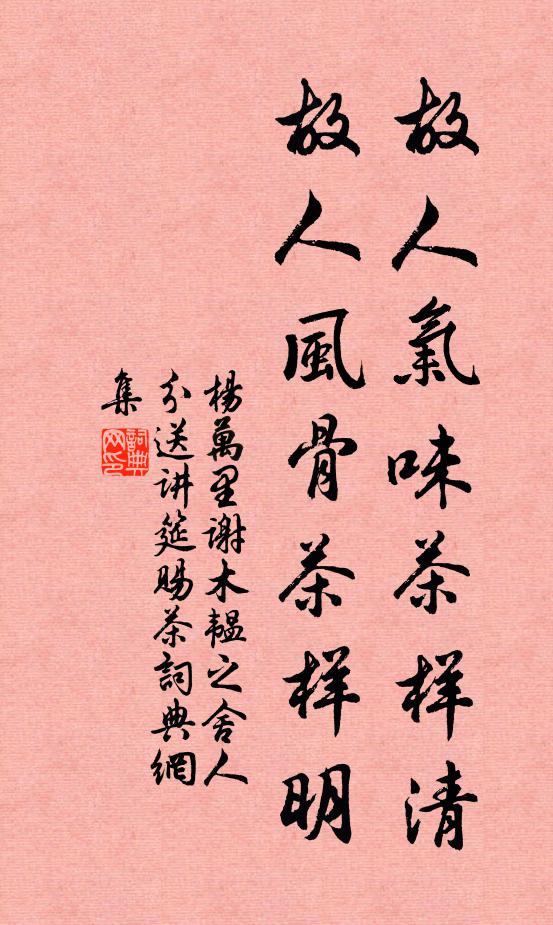 故人氣味茶样清
故人風骨茶样明
楊萬里谢木韞之舍人
分送讲筵賜茶詞典網
集
詞典网印